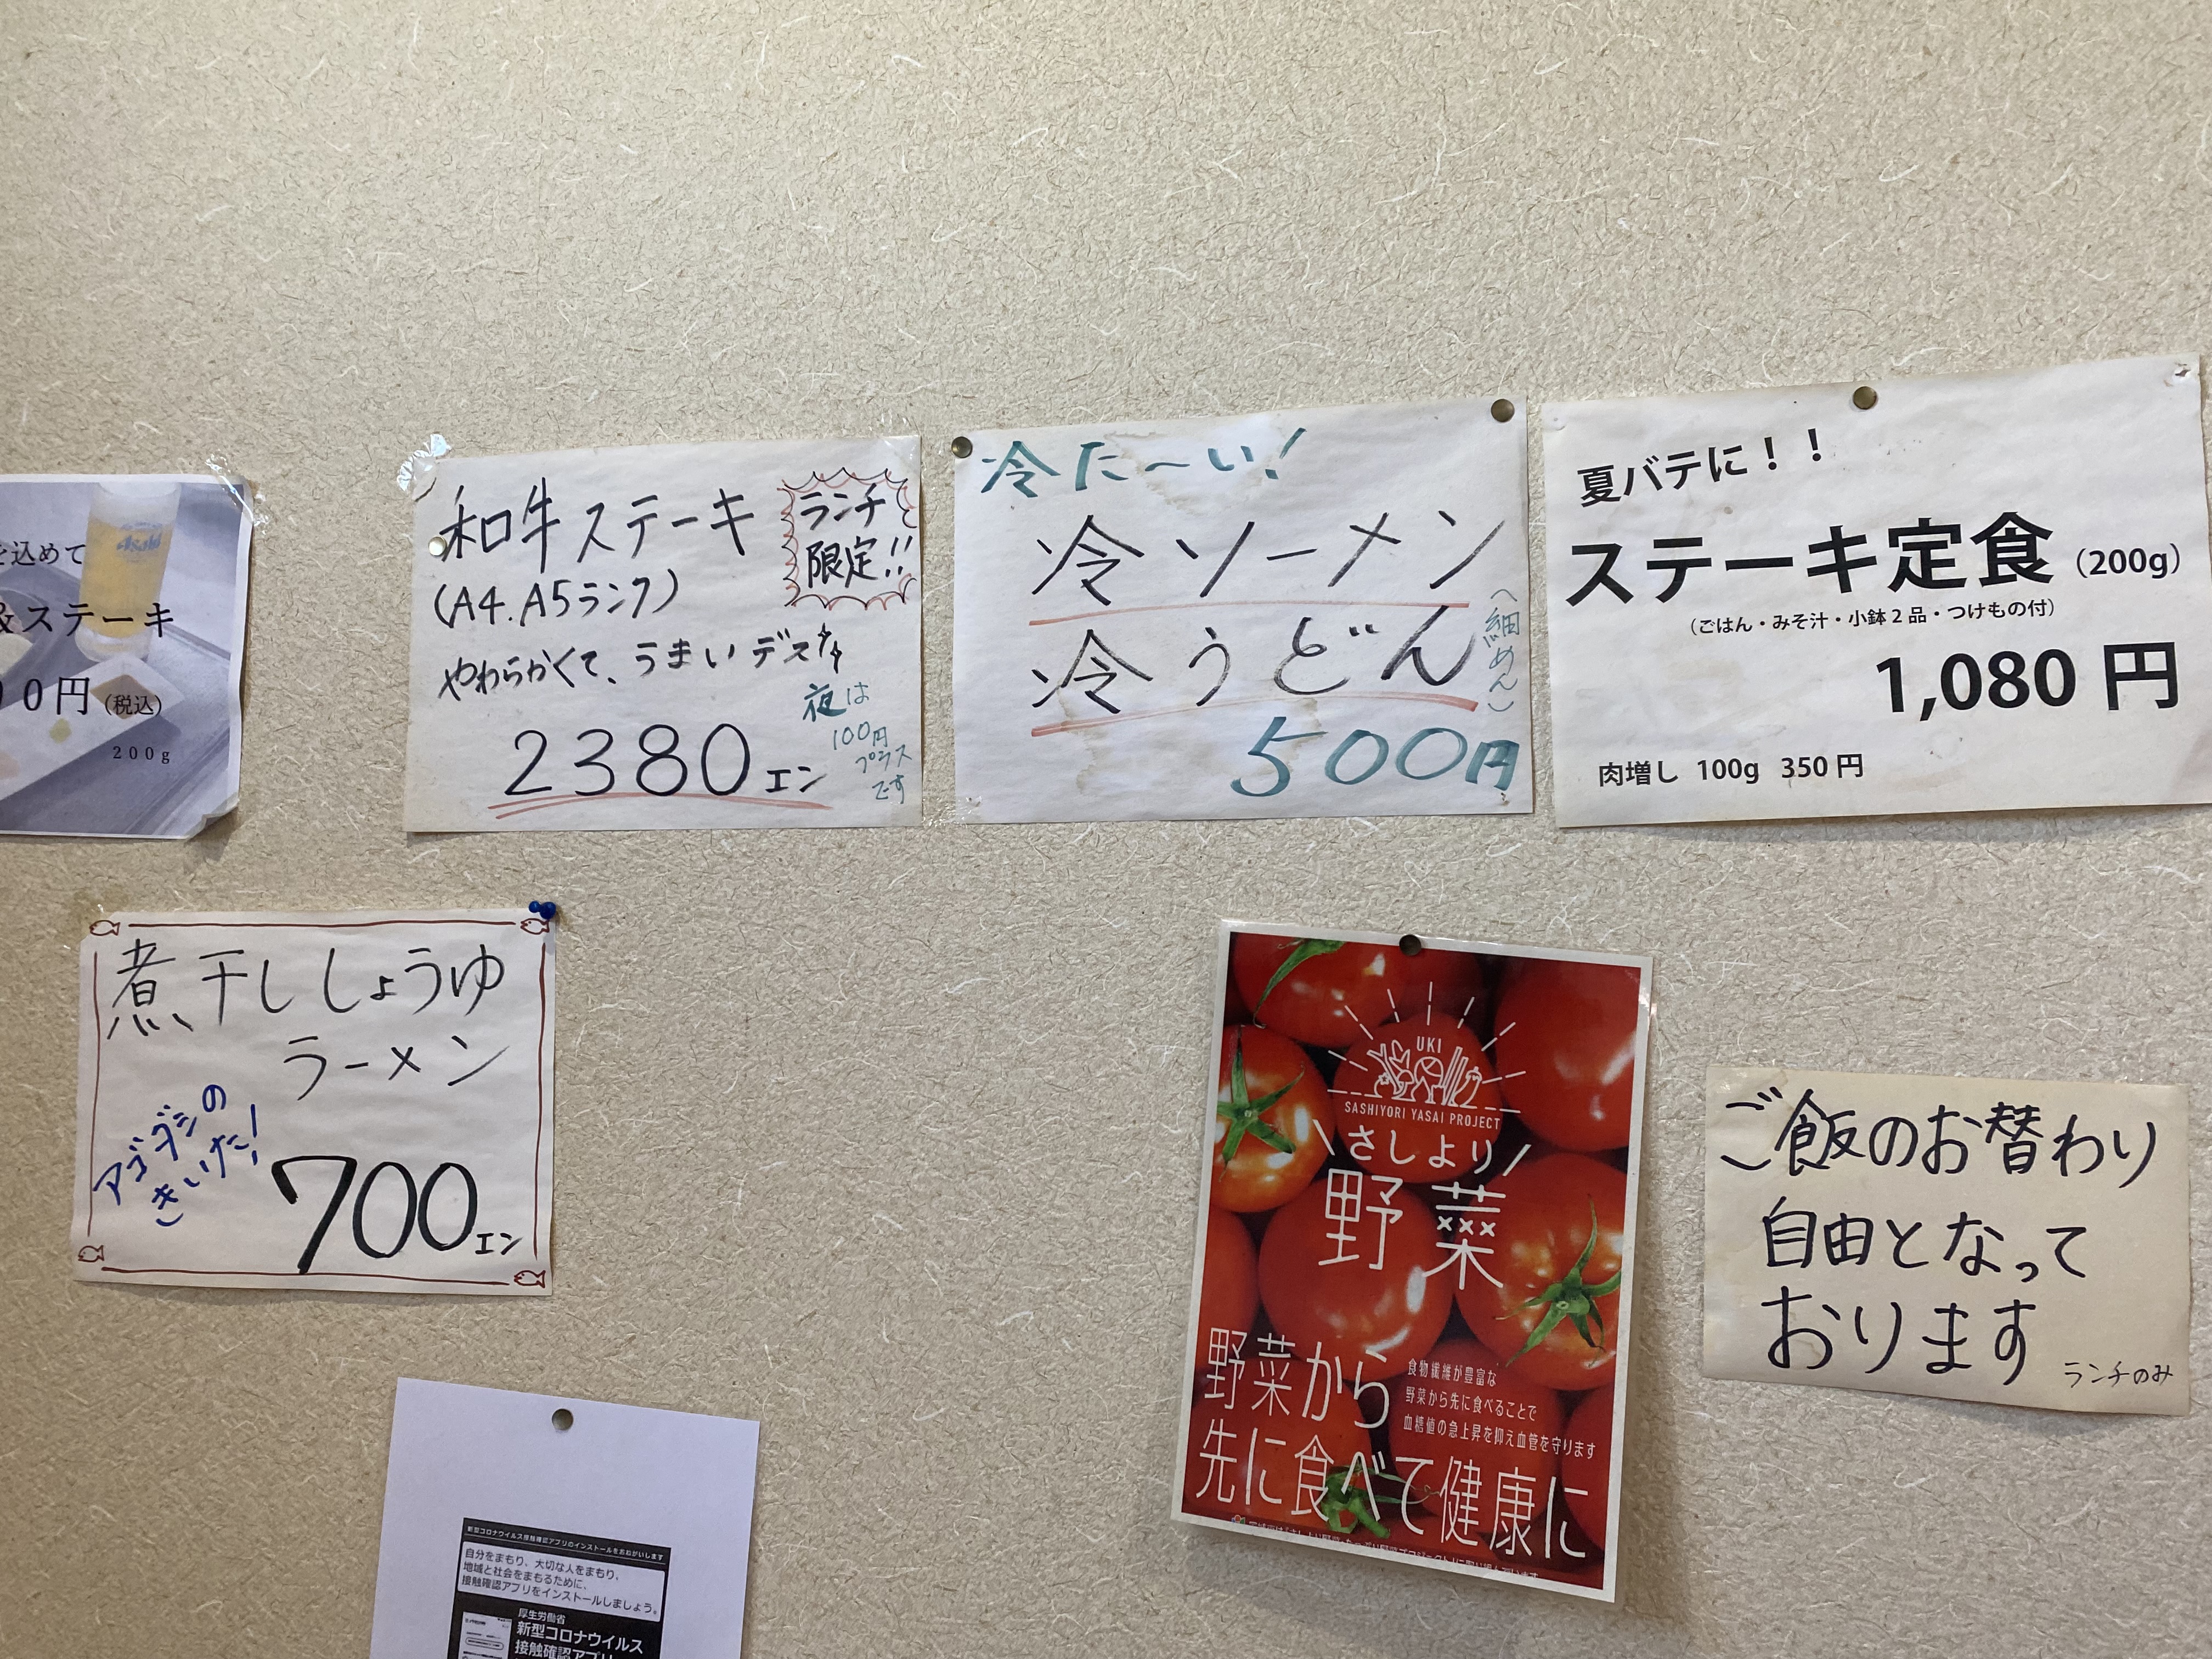 を込めて
&ステーキ
00円(税込)
200g
和牛ステーキ
(A4.A5ランク)
やわらかくて、うまいデス
2380エン
ランチ
限定!!
夜は
100円
プラス
です
冷た〜い!
冷ソーメン
冷うどん
(細めん)
500円
夏バテに!!
ステーキ定食(200g)
(ごはん・みそ汁・小鉢2品・つけもの付)
1,080円
肉増し 100g 350円
煮干ししょうゆ
ラーメン
アゴダシの
きいた!
700エン
UKI
SASHIYORI YASAI PROJECT
\さしより/
野菜
野菜から
先に食べて健康に
食物繊維が豊富な
野菜から先に食べることで
血糖値の急上昇を抑え血管を守ります
ご飯のお替わり
自由となって
おります
ランチのみ
新型コロナウイルス接触確認アプリのインストールをおねがいします
自分をまもり、大切な人をまもり、
地域と社会をまもるために、
接触確認アプリをインストールしましょう。
厚生労働省
新型コロナウイルス
接触確認アプリ